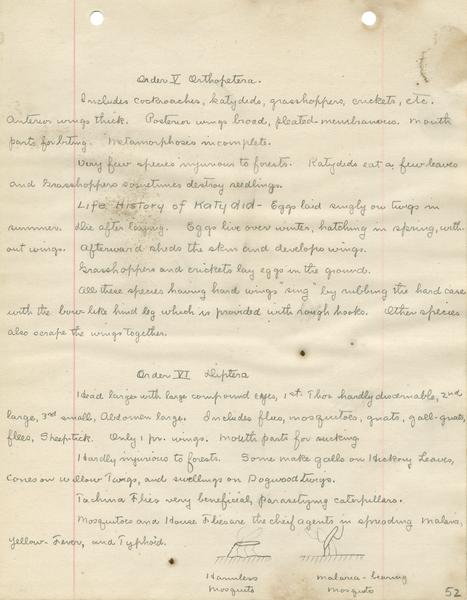 Order V Orthoptera.
Includes cockroaches, katydids, grasshoppers, crickets, etc.
Anterior wings thick. Posterior wings broad, pleated-membranous. Mouth
parts for biting. Metamorphosis incomplete.
Very few species injurious to forests. Katydids eat a few leaves
and Grasshoppers sometimes destroy seedlings.
Life History of Katydid - Eggs laid singly on twigs in
summer. Die after laying. Eggs live over winter, hatching in spring, with-
out wings. Afterward sheds the skin and develops wings.
Grasshoppers and crickets lay eggs in the ground.
All these species having hard wings "sing" by rubbing the hard case
with the bow like hind leg which is provided with rough hooks. Other species
also scrape the wings together.
Order VI Diptera
Head larger with large compound eyes, 1st. Thor. hardly discernable, 2nd
large, 3rd small, Abdomen large. Includes flies, mosquitoes, gnats, gall-gnats,
flees, Sheep-tick. Only 1 pr. wings. Mouth parts for sucking
Hardly injurious to forests. Some make galls on Hickory Leaves,
Cones on willow Twigs, and swellings on Dogwood twigs.
Tachina Flies very beneficial, parasetizing caterpillars.
Mosquitoes and House Flies are the cheif agents in spreading Malaria,
Yellow-Fever, and Typhoid.
Harmless malaria-bearing
mosquito mosquito
52